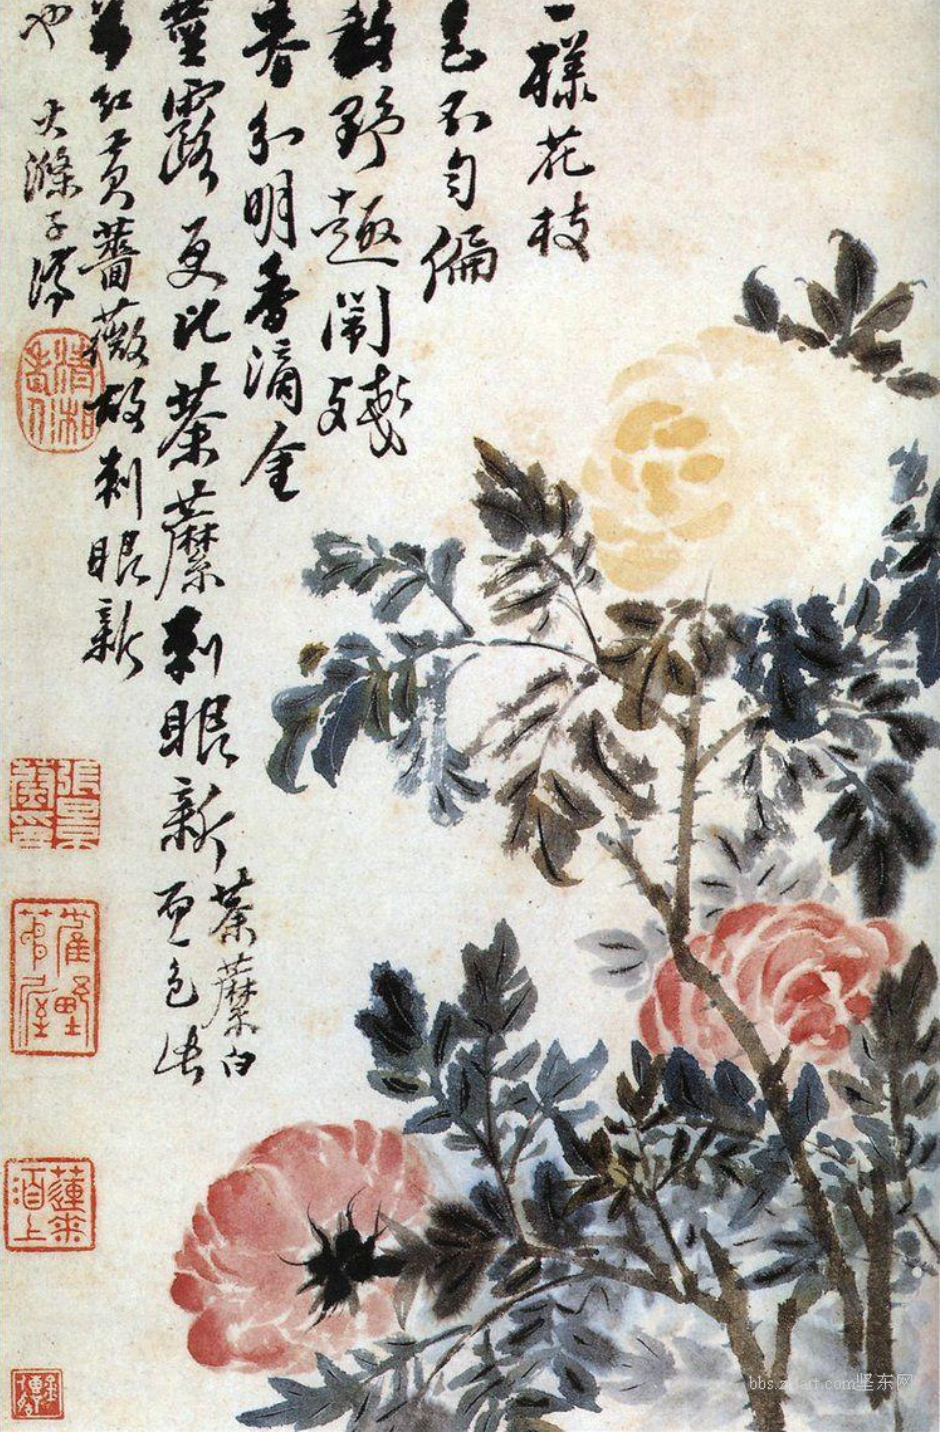 一樣花枝
色不勻偏
教野趣鬧殘
春分明香滴金
莖露更比荼蘼刺眼新
荼蘼白
而色
紅黃薔薇故刺眼新
也 大滌子濟
清湘老人
bbs.zdart.com坚东网